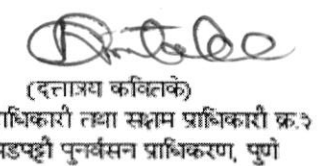 (दत्तात्रय कवितके)
ाधिकारी तथा सक्षम प्राधिकारी क्र.२
पडपट्टी पुनर्वसन प्राधिकरण, पुणे